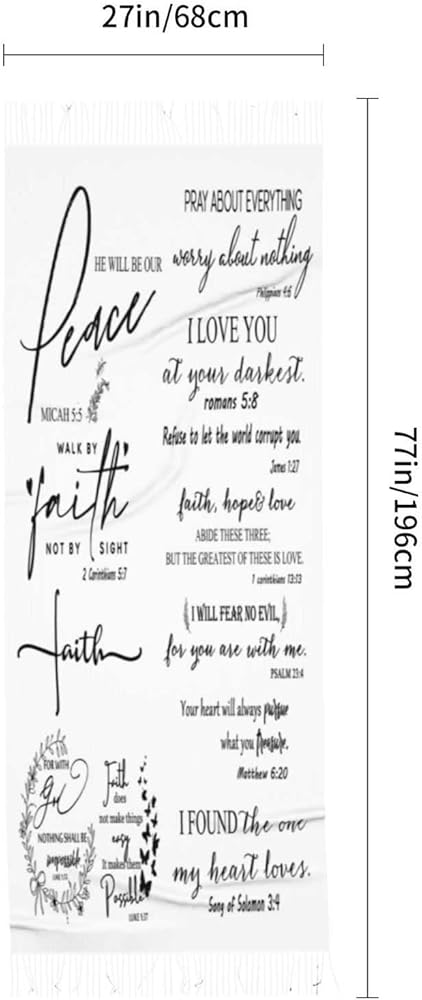 27in/68cm
77in/196cm
HE WILL BE OUR
Peace
MICAH 5:5
WALK BY
faith
NOT BY SIGHT
2 Corinthians 5:7
faith
FOR WITH
God
NOTHING SHALL BE
impossible
LUKE 1:37
Faith
does
not make things
easy
It makes them
Possible
LUKE 1:37
PRAY ABOUT EVERYTHING
worry about nothing
Philippians 4:6
I LOVE YOU
at your darkest.
romans 5:8
Refuse to let the world corrupt you.
James 1:27
faith, hope & love
ABIDE THESE THREE;
BUT THE GREATEST OF THESE IS LOVE.
1 corinthians 13:13
I WILL FEAR NO EVIL,
for you are with me.
PSALM 23:4
Your heart will always pursue
what you treasure.
Matthew 6:20
I FOUND the one
my heart loves.
Song of Solomon 3:4